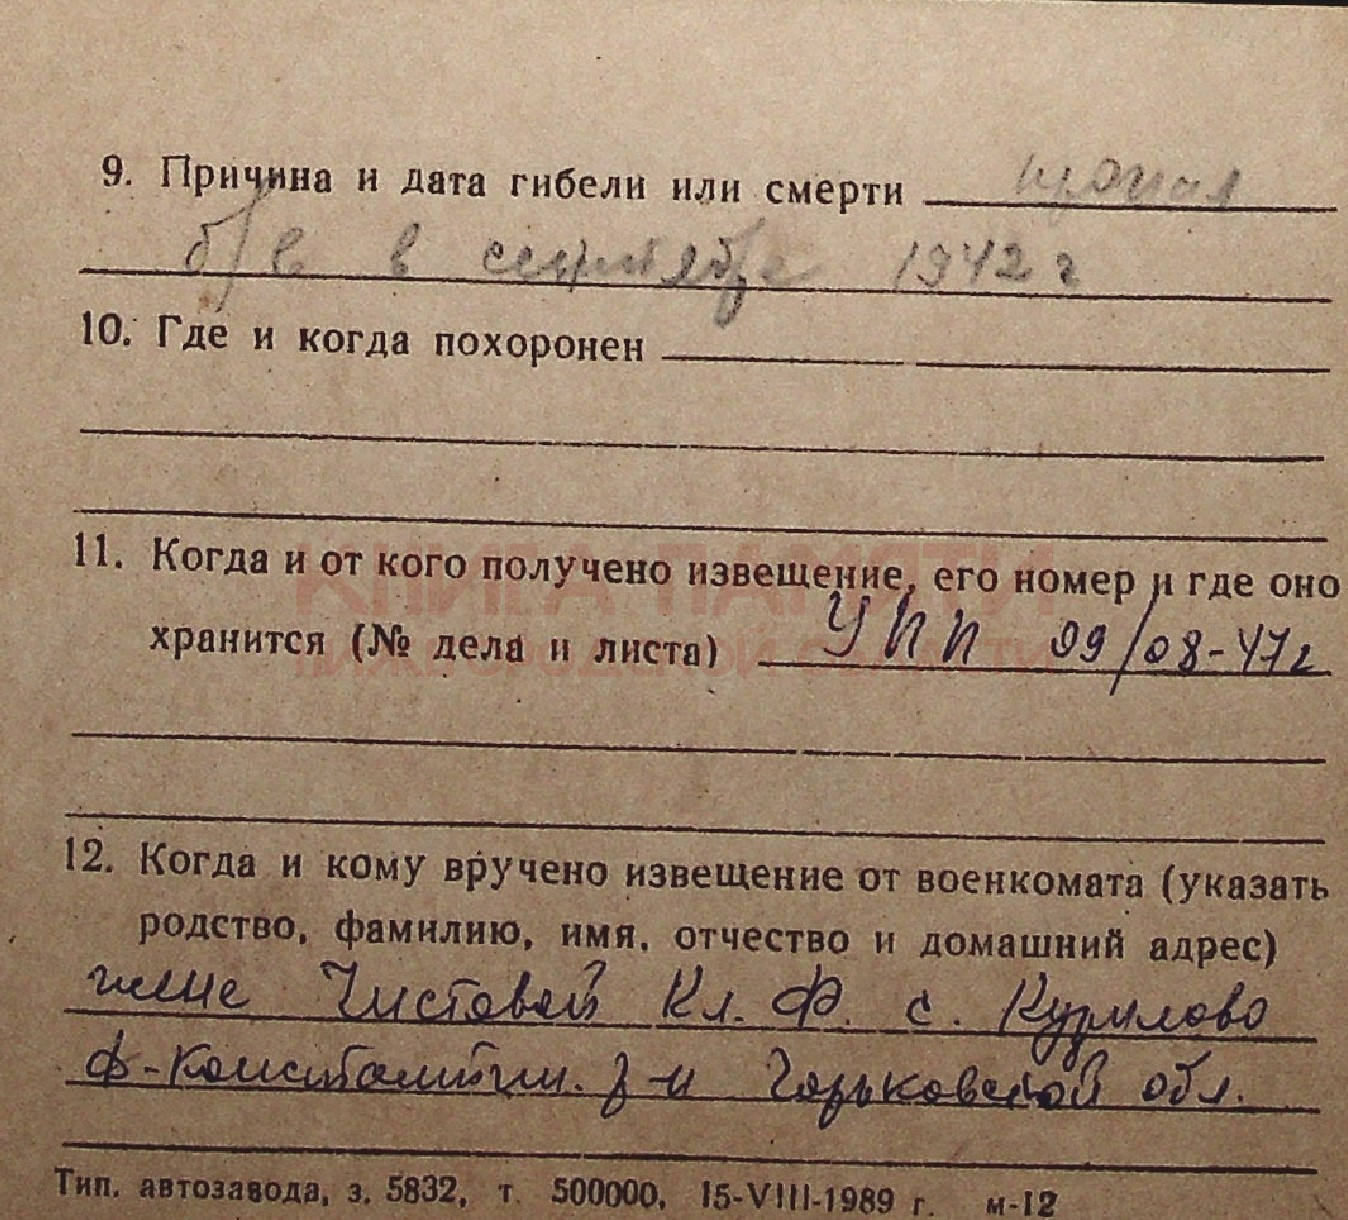 9. Причина и дата гибели или смерти пропал
б/в в сентябре 1942 г
10. Где и когда похоронен
11. Когда и от кого получено извещение, его номер и где оно
КНИГА ПАМЯТИ
хранится (№ дела и листа) УПП 09/08-47г
НИЖЕГОРОДСКОЙ ОБЛАСТИ
12. Когда и кому вручено извещение от военкомата (указать
родство, фамилию, имя, отчество и домашний адрес)
жене Чистовой Кл. Ф. с.
д-Константин. р-н Горьковской обл.
Тип. автозавода, з. 5832, т. 500000, 15-VIII-1989 г. м-12